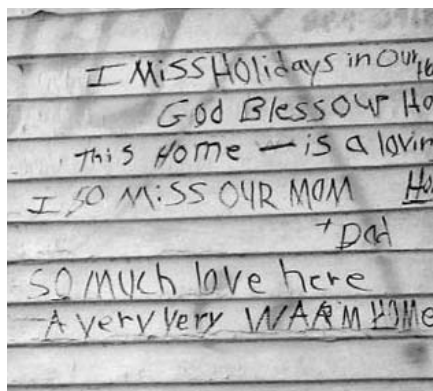 I MiSS Holidays in Our
God Bless Our Ho
This Home — is a lovin
I SO MiSS OUR MOM Ho
+ Dad
SO MUCH love here
A very very WARM HOMe